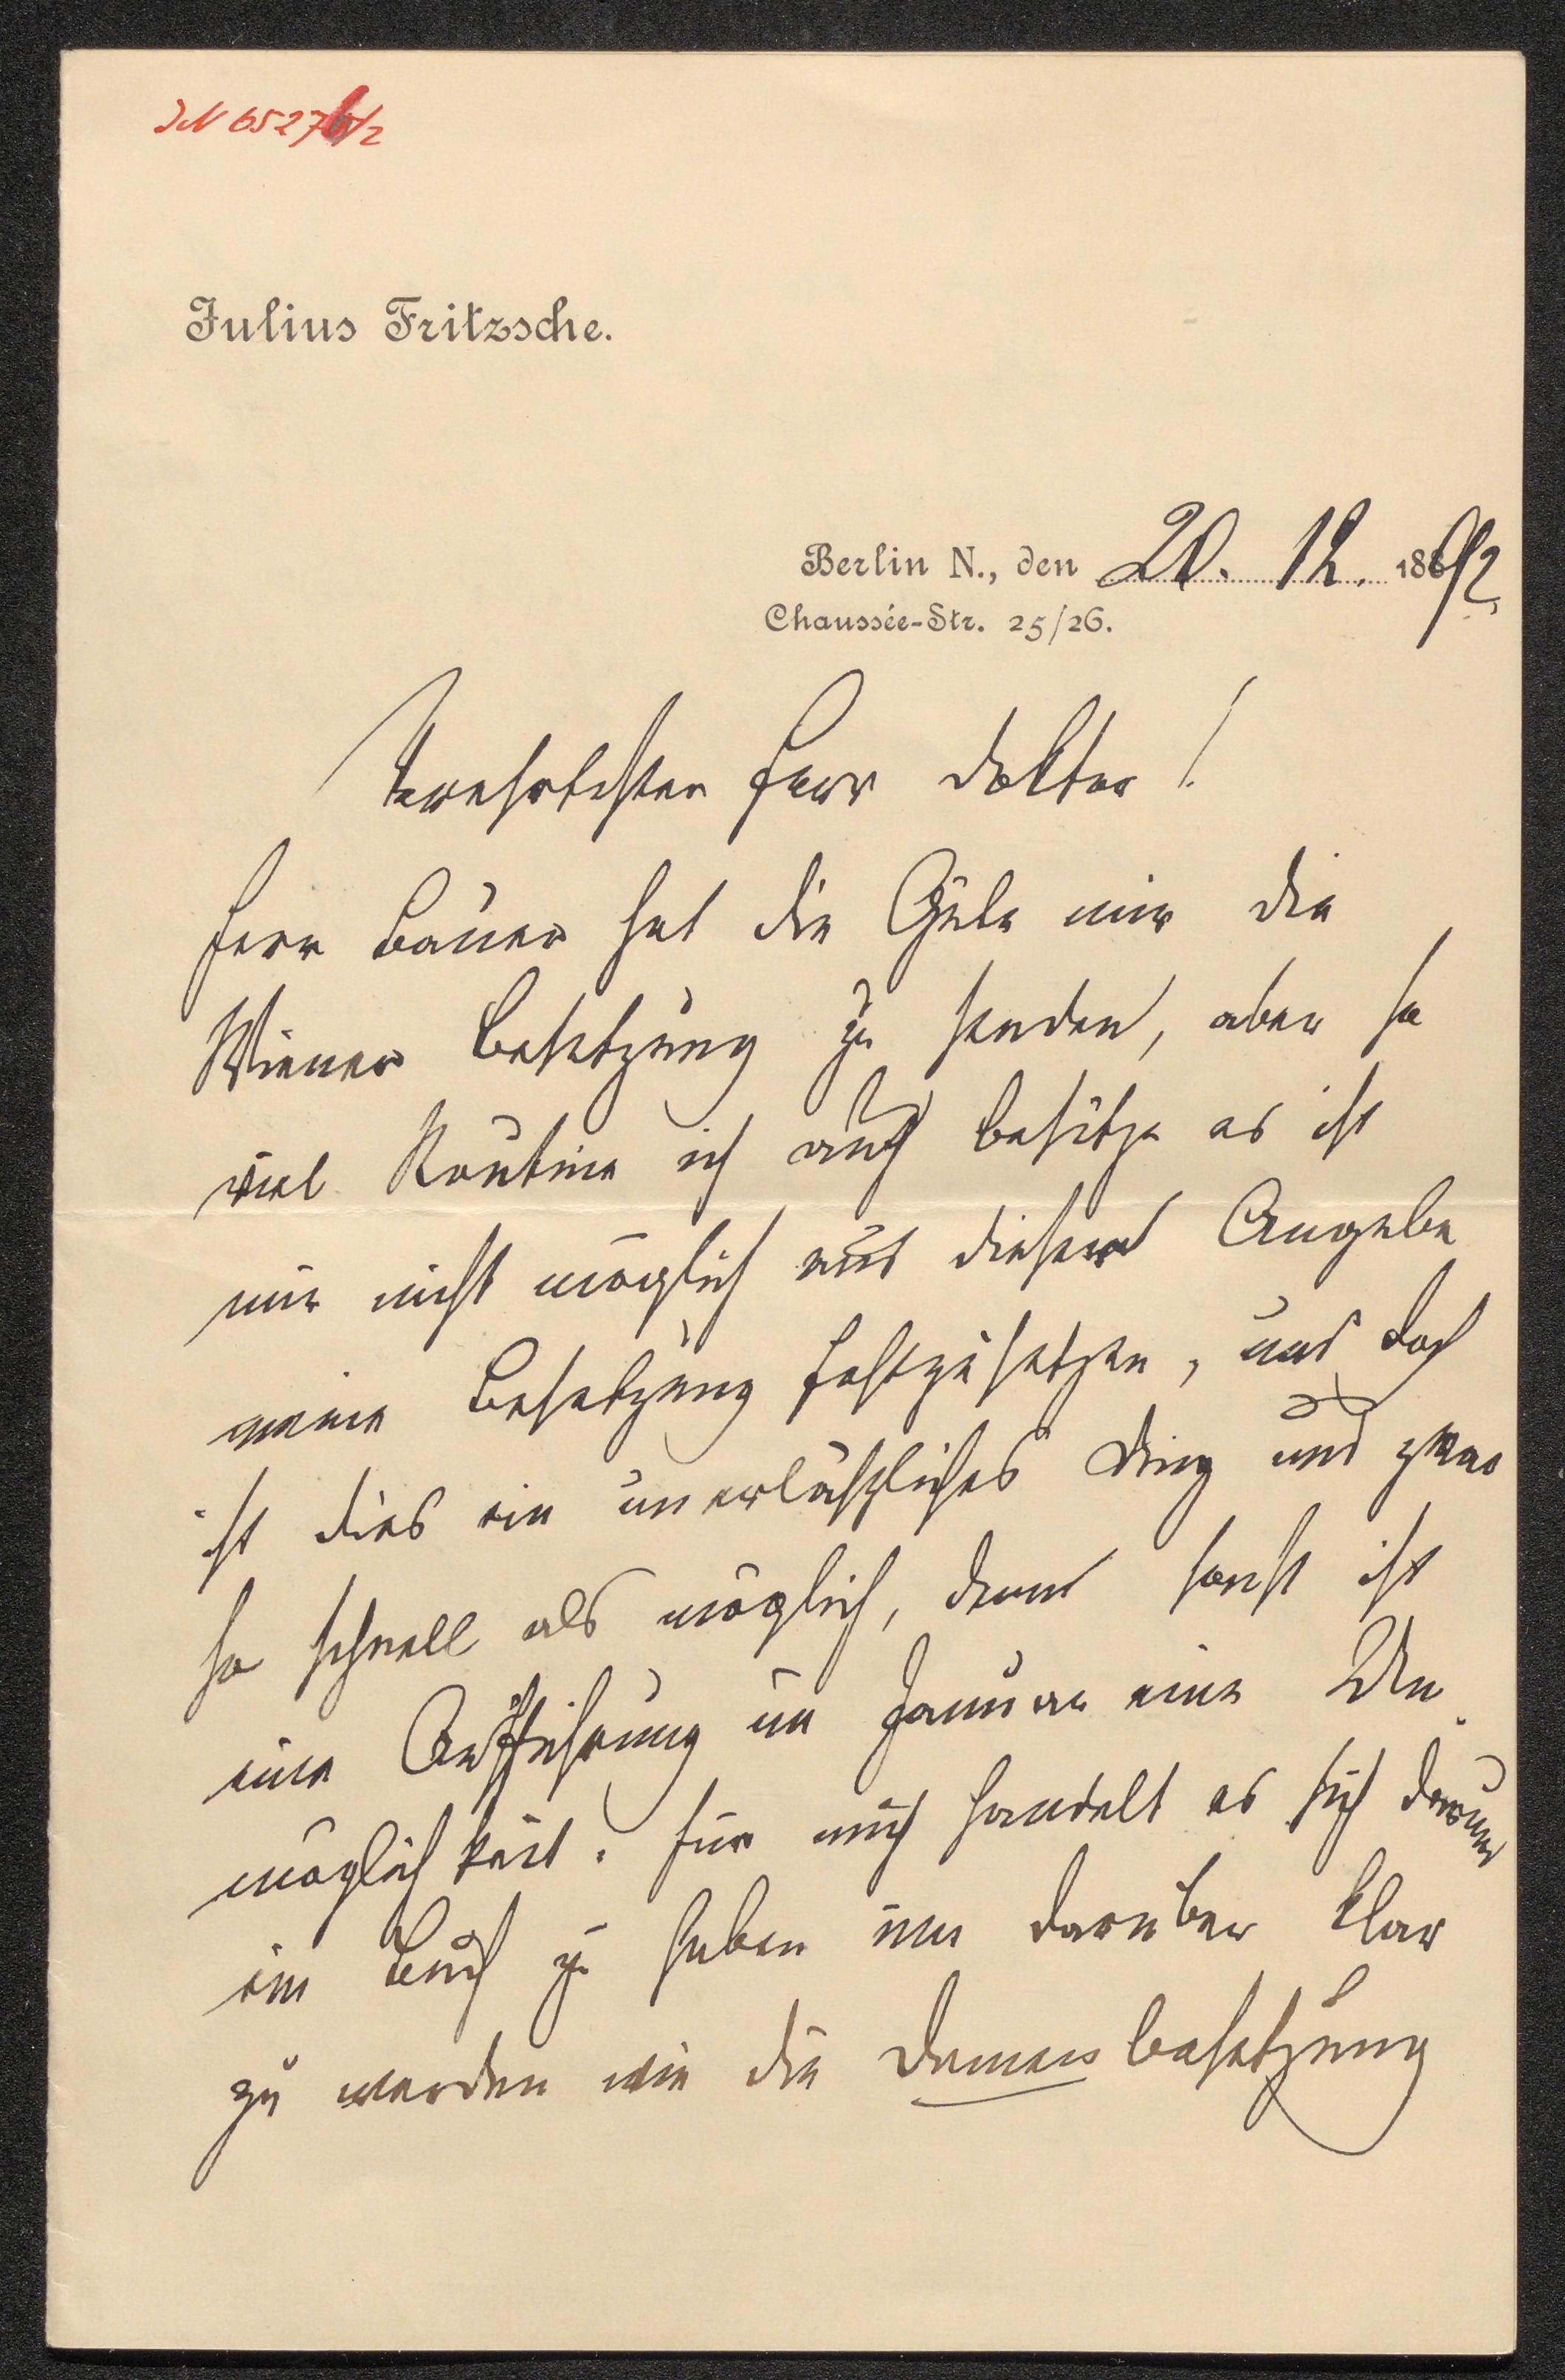 JN 65276/2
Julius Fritzsche.
Berlin N., den 20. 12. 1892.
Chaussée-Str. 25/26.
Verehrtester Herr Doktor!
Herr Bauer hat die Güte mir die
Wiener Besetzung zu senden, aber so
viel Routine ich auch besitze es ist
mir nicht möglich aus dieser Angabe
meine Besetzung festzusetzen, und doch
ist dies ein unerläßliches Ding und zwar
so schnell als möglich, denn sonst ist
eine Aufführung im Januar eine Un-
möglichkeit. Für mich handelt es sich darum
ein Buch zu haben um darüber klar
zu werden wie die Damenbesetzung